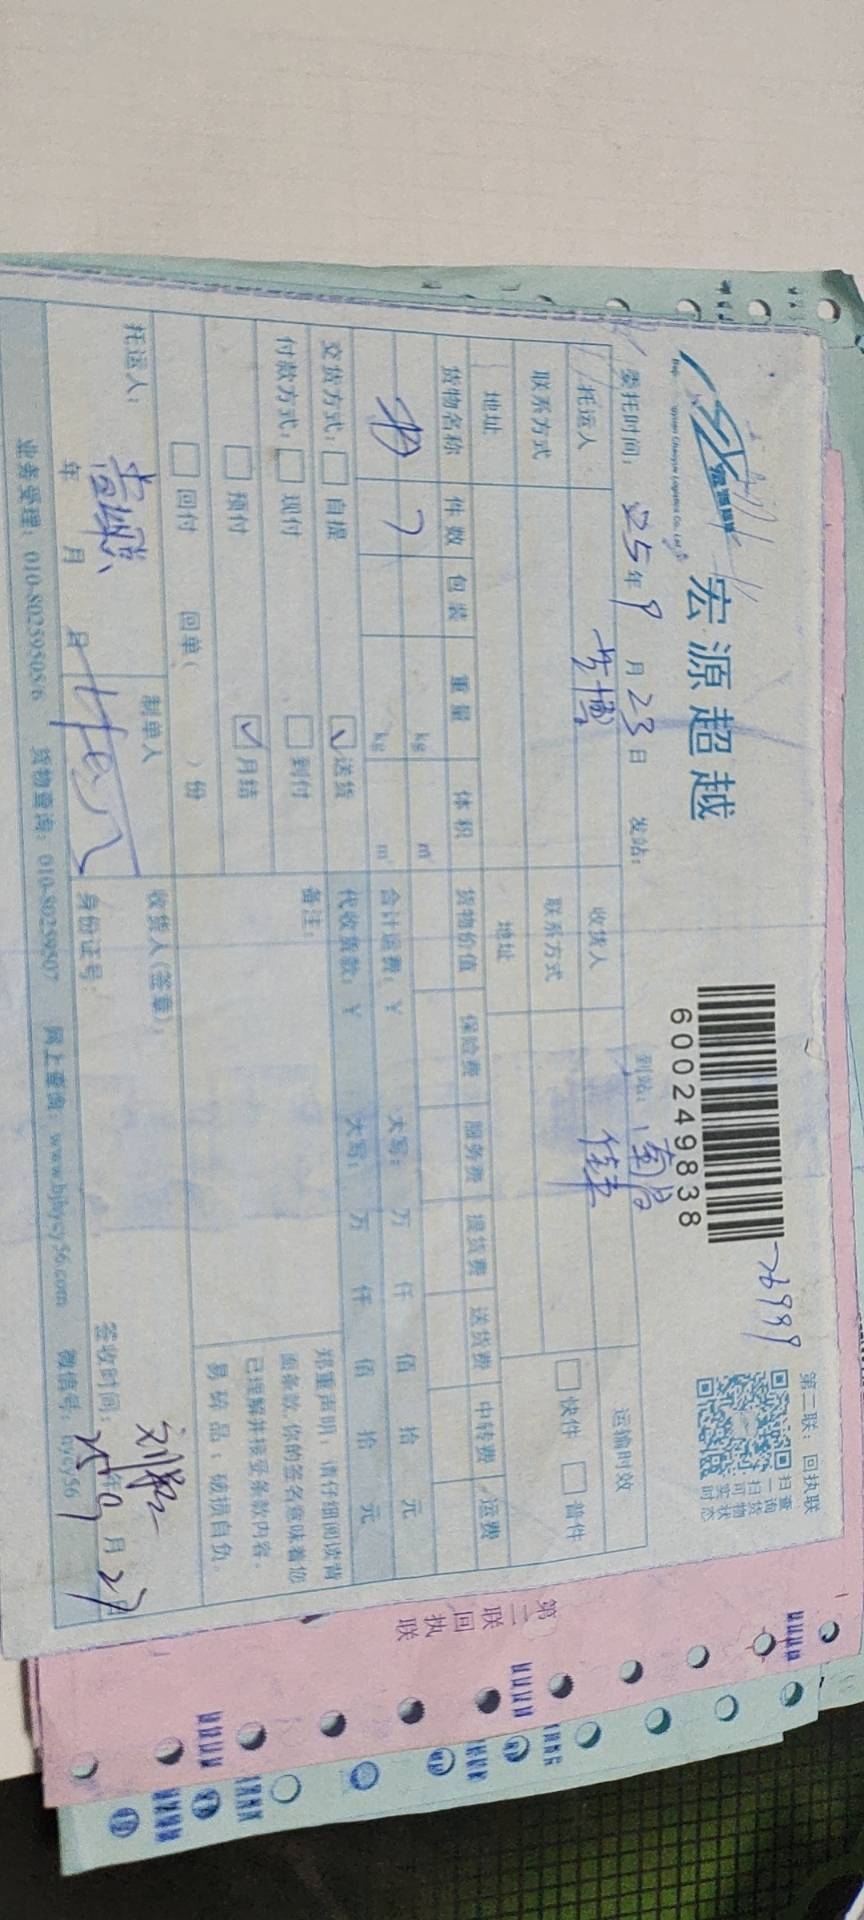 宏源超越
600249838
76999
第二联:回执联
扫一扫可实时
查询货物状态
委托时间:25年9月23日 发站: 到站:南昌
托运人 收货人 运输时效
联系方式 联系方式 □快件 □普件
地址 地址
货物名称 件数 包装 重量 体积 货物价值 保险费 服务费 提货费 送货费 中转费 运费
kg m³
kg m³ 合计运费:¥ 大写: 万 仟 佰 拾 元
交货方式:□自提 ☑送货 代收货款:¥ 大写: 万 仟 佰 拾 元
付款方式:□现付 □到付 备注:
□预付 ☑月结
□回付 回单( )份
郑重声明:请仔细阅读背
面条款,你的签名意味着您
已理解并接受条款内容。
易碎品:破损自负。
托运人: 制单人 收货人(签章):
年 月 日 身份证号: 签收时间:25年9月27
业务受理:010-80259505/6 货物查询:010-80259507 网上查询:www.bjhycy56.com 微信号:hycy56
第二联回执联